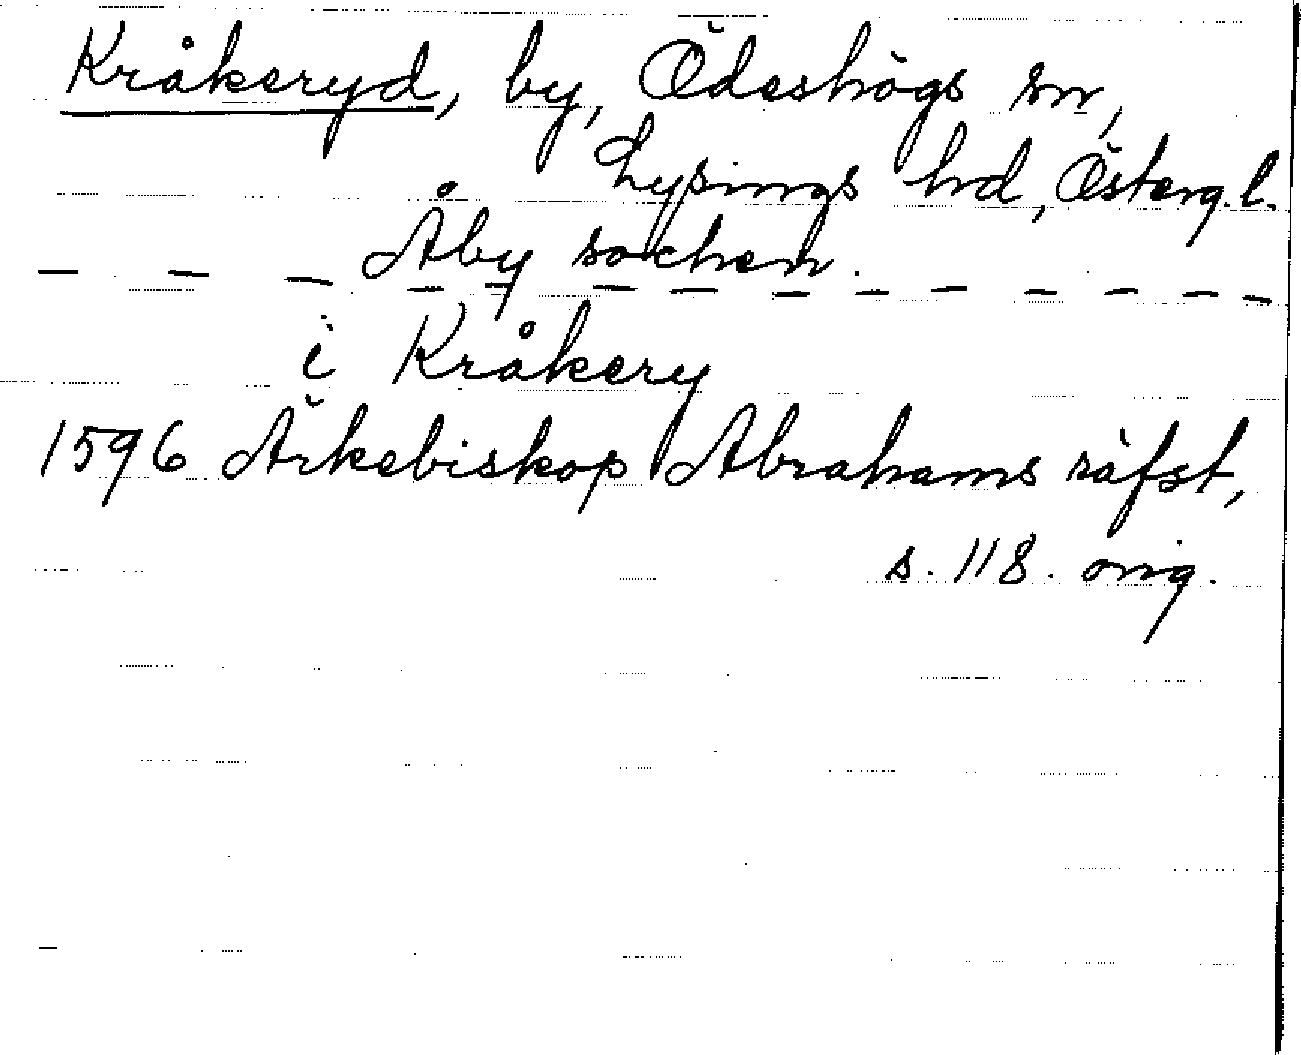 Kråkeryd, by, Ödeshögs sn,
Lysings hd, Österg.l.
Åby sochen.
i Kråkery
1596 Ärkebiskop Abrahams räfst,
s. 118. orig.